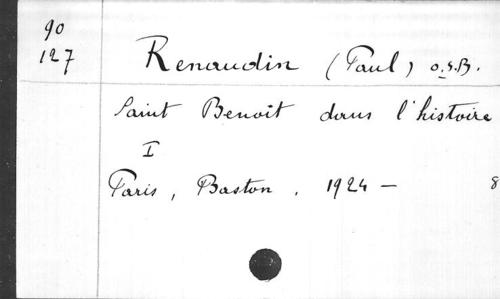 90
127
Renaudin (Paul) O.S.B.
Saint Benoît dans l'histoire
I
Paris, Baston. 1924 — 8